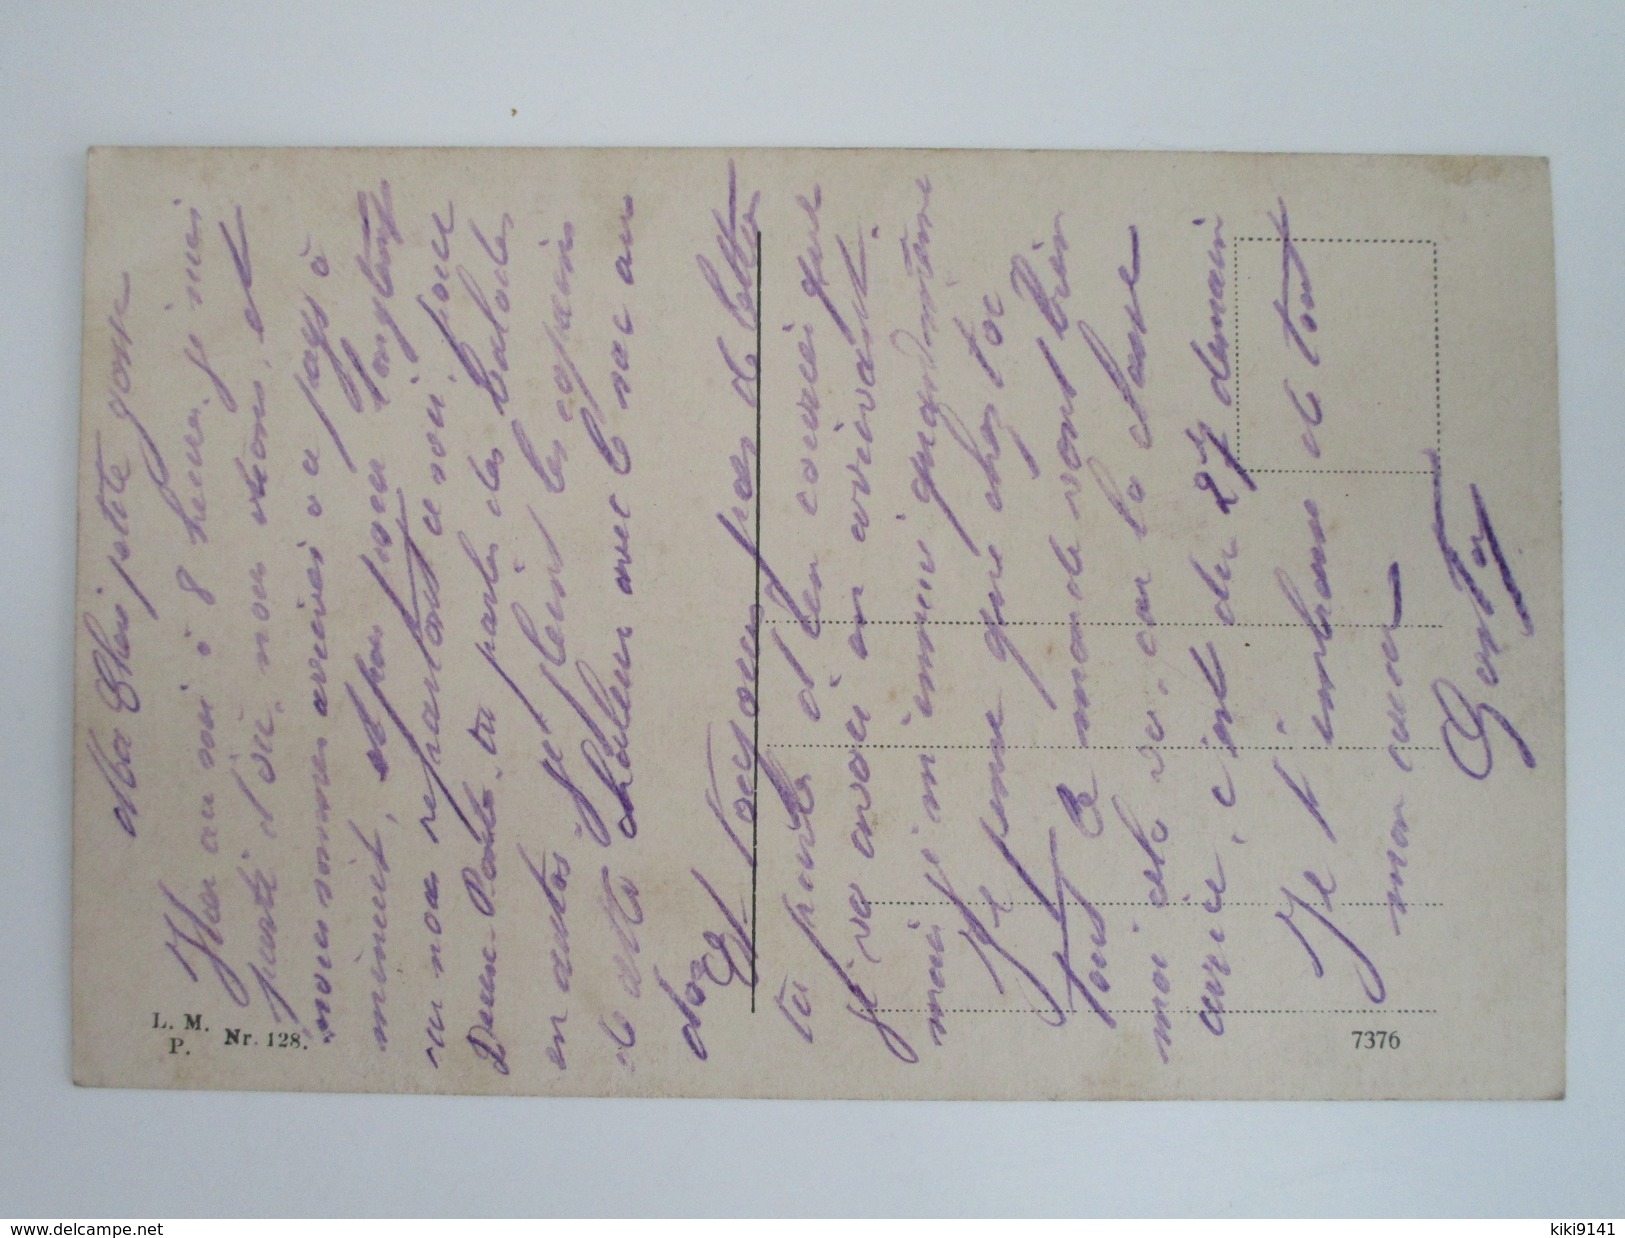 Ma Chère petite gosse
Hier au soir à 8 heures je suis
parti d'où nous étions, et
nous sommes arrivés à pays à
minuit, et pas pour longtemps
car nous repartons ce soir pour
Deux Ponts, tu parles des balades
en autos, je plains les copains
de cette chaleur avec le sac au
dos
Toujours pas de lettre
tu parles d'un courrier que
je vais avoir en arrivant.
mais je m'ennuie quand même
Je pense que chez toi
tout le monde vont bien
moi cela va, car la classe
arrive, c'est du 27 demain
Je t'embrasse de tout
mon cœur
Gaston
L. M.
P. Nr. 128.
7376
www.delcampe.net
kiki9141